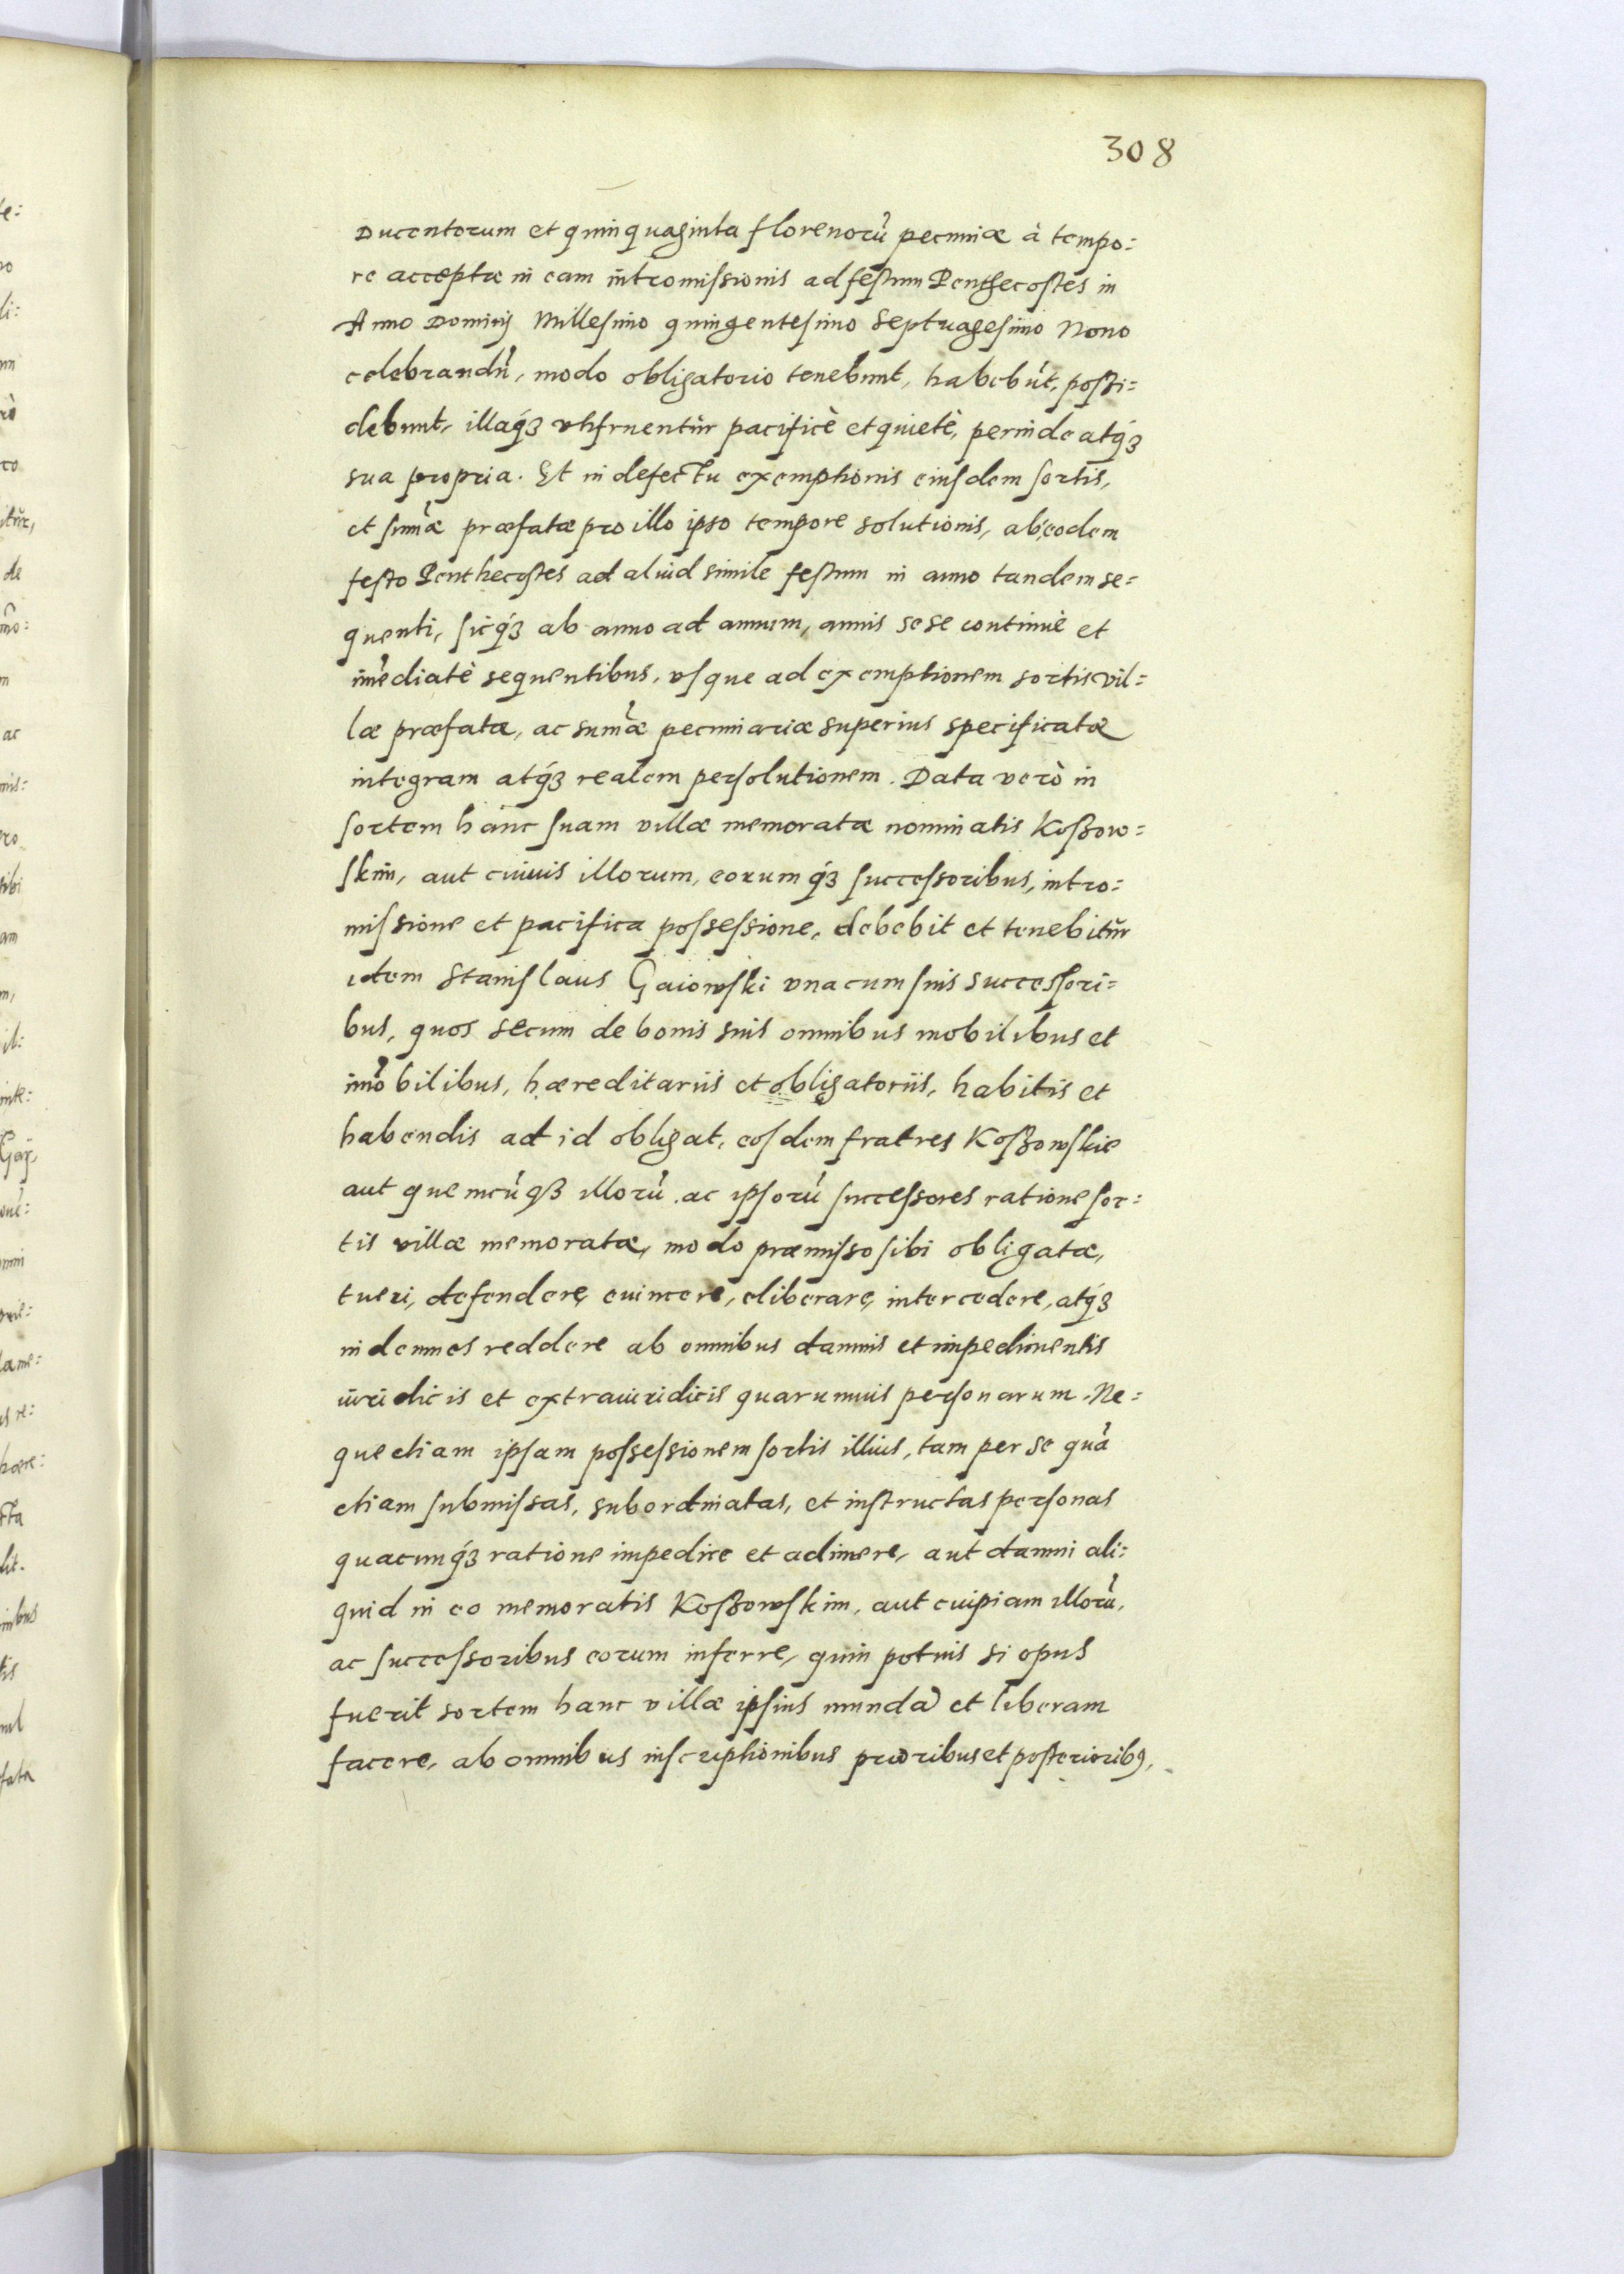 308
Ducentorum et quinquaginta florenorũ pecuniæ à tempo:
re acceptæ in eam intromissionis ad festum Penthecostes in
Anno Dominij Millesimo quingentesimo Septuagesimo Nono
celebrandũ, modo obligatorio tenebunt, habebũt, possi=
debunt, illaq́ʒ vtifruentŭr pacificè et quietè, perinde atq́ʒ
sua propria. Et in defectu exemptionis eiusdem sortis,
et sum̃æ præfatæ pro illo ipso tempore solutionis, ab eodem
festo Penthecostes ad aliud simile festum in anno tandem se=
quenti, sicq́ʒ ab anno ad annum, annis sese continuè et
im̃ediatè sequentibus, vsque ad exemptionem sortis vil=
læ præfatæ, ac sum̃æ pecuniariæ superius specificatæ
integram atq́ʒ realem persolutionem. Data verò in
sortem hanc suam villæ memoratæ nominatis Koßow=
skim, aut cuiuis illorum, eorumq́ʒ successoribus, intro:
missione et pacifica possessione, debebit et tenebitŭr
idem Stanislaus Gaiowski vnacum suis successori=
bus, quos secum de bonis suis omnibus mobilibus et
im̃obilibus, hæreditariis et obligatoriis, habitis et
habendis ad id obligat, eosdem fratres Koßowskie
aut quemcũqʒ illorũ ac ipsorũ successores ratione sor:
tis villæ memoratæ, modo præmisso sibi obligatæ,
tueri, defendere, euincere, eliberare, intercedere, atq́ʒ
indemnes reddere ab omnibus damnis et impedimentis
iuridicis et extraiuridicis quarumuis personarum. Ne:
que etiam ipsam possessionem sortis illius, tam per se quã
etiam submissas, subordinatas, et instructas personas
quacunq́ʒ ratione impedire et adimere, aut damni ali:
quid in eo memoratis Koßowskim, aut cuipiam illorũ,
ac successoribus eorum inferre, quin potius si opus
fuerit sortem hanc villæ ipsius mundã et liberam
facere, ab omnibus inscriptionibus prioribus et posterioribꝰ,